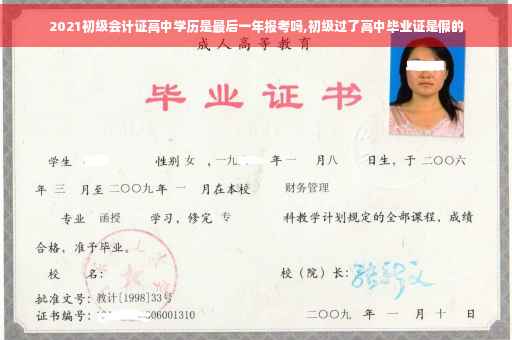 2021初级会计证高中学历是最后一年报考吗,初级过了高中毕业证是假的
成人高等教育
毕业证书
学生 性别 女 ，一九 年 一 月八 日生，于 二〇〇六
年 三 月至 二〇〇九 年 一 月在本校 财务管理
专业 函授 学习，修完 专 科教学计划规定的全部课程，成绩
合格，准予毕业。
校 名： 校（院）长：
批准文号：教计[1998]33号
证书编号： 6006001310 二〇〇九 年 一 月 十 日